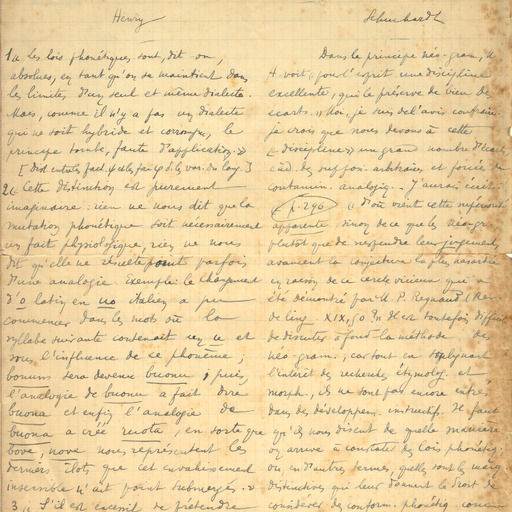 Henry
1 « Les lois phonétiques sont, dit-on,
absolues, en tant qu'on se maintient dans
les limites d'un seul et même dialecte.
Mais, comme il n'y a pas un dialecte
qui ne soit hybride et corrompu, le
principe tombe, faute d'application. »
2 « Cette distinction est purement
imaginaire: rien ne nous dit que la
mutation phonétique soit nécessairement
un fait physiologique, rien ne nous
dit qu'elle ne résulte point parfois
d'une analogie. Exemple: le changement
d'o latin en uo italien a pu
commencer dans les mots où la
syllabe suivante contenait un u et
sous l'influence de ce phonème;
bonum sera devenu buonu; puis,
l'analogie de buonu a fait dire
buona et enfin l'analogie de
buona a créé ruota, en sorte que
bove, nove nous représentent les
derniers îlots que cet envahissement
insensible n'ait point submergés. »
3 « S'il est excessif de prétendre
Schuchardt
Dans le principe néo-gram., 
voit « pour l'esprit une discipline
excellente, qui le préserve de bien de
écarts. » Non, je suis d'avis contraire
je crois que nous devons à cette
« discipline » un grand nombre d'écarts
càd. de suppos. arbitraires et forcées de
contamin. analogiq. - J'aurais écrit:
(p. 290) « d'où vient cette supériorité
apparente, sinon de ce que les néogr.
plutôt que de suspendre leur jugement
avancent la conjecture la plus hasardée
en raison de ce cercle vicieux qui a
été démontré par M. P. Regnaud (Rev.
de ling. XIX, 50 Il est toutefois difficile
de discuter à fond la méthode des
néo-gram.; car tout en soulignant
l'intérêt des recherches étymolog. et
morph., ils ne sont pas encore entrés
dans des développem. instructifs. Il faut
qu'ils nous disent de quelle manière
on arrive à constater des lois phonétiq.
ou en d'autres termes, quelles sont les marq.
distinctives qui leur donnent le droit de
considérer des conform. phonétiq. comme